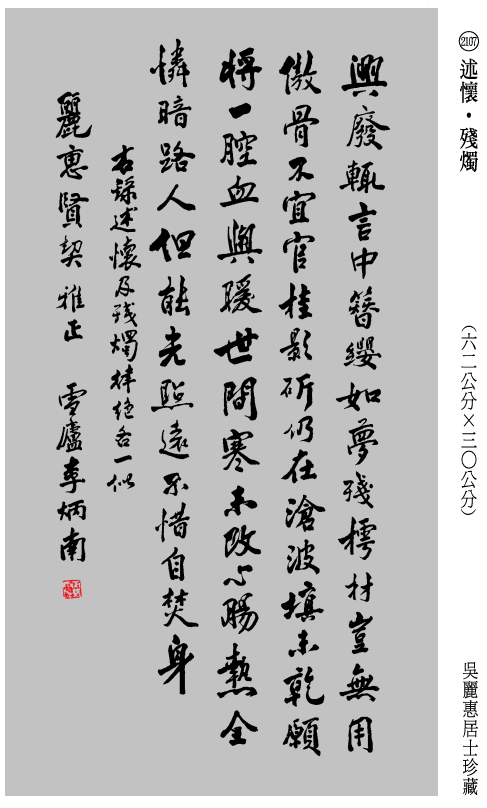 2107 述懷・殘燭
（六二公分×三〇公分）
吳麗惠居士珍藏
興廢輒言中簪纓如夢殘樗材豈無用
傲骨不宜官桂影斫仍在滄波填未乾願
將一腔血與暖世間寒未改心腸熱全
憐暗路人但能光照遠不惜自焚身
右錄述懷及殘燭律絕各一似
麗惠賢契雅正 雪廬李炳南